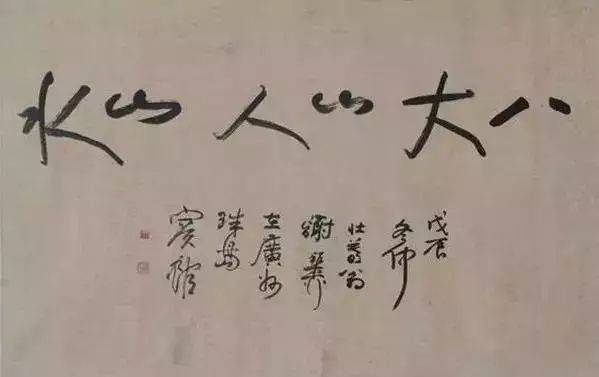 八大山人山水
戊辰
冬仲
壮暮翁
謝
在廣州
珠島
賓館